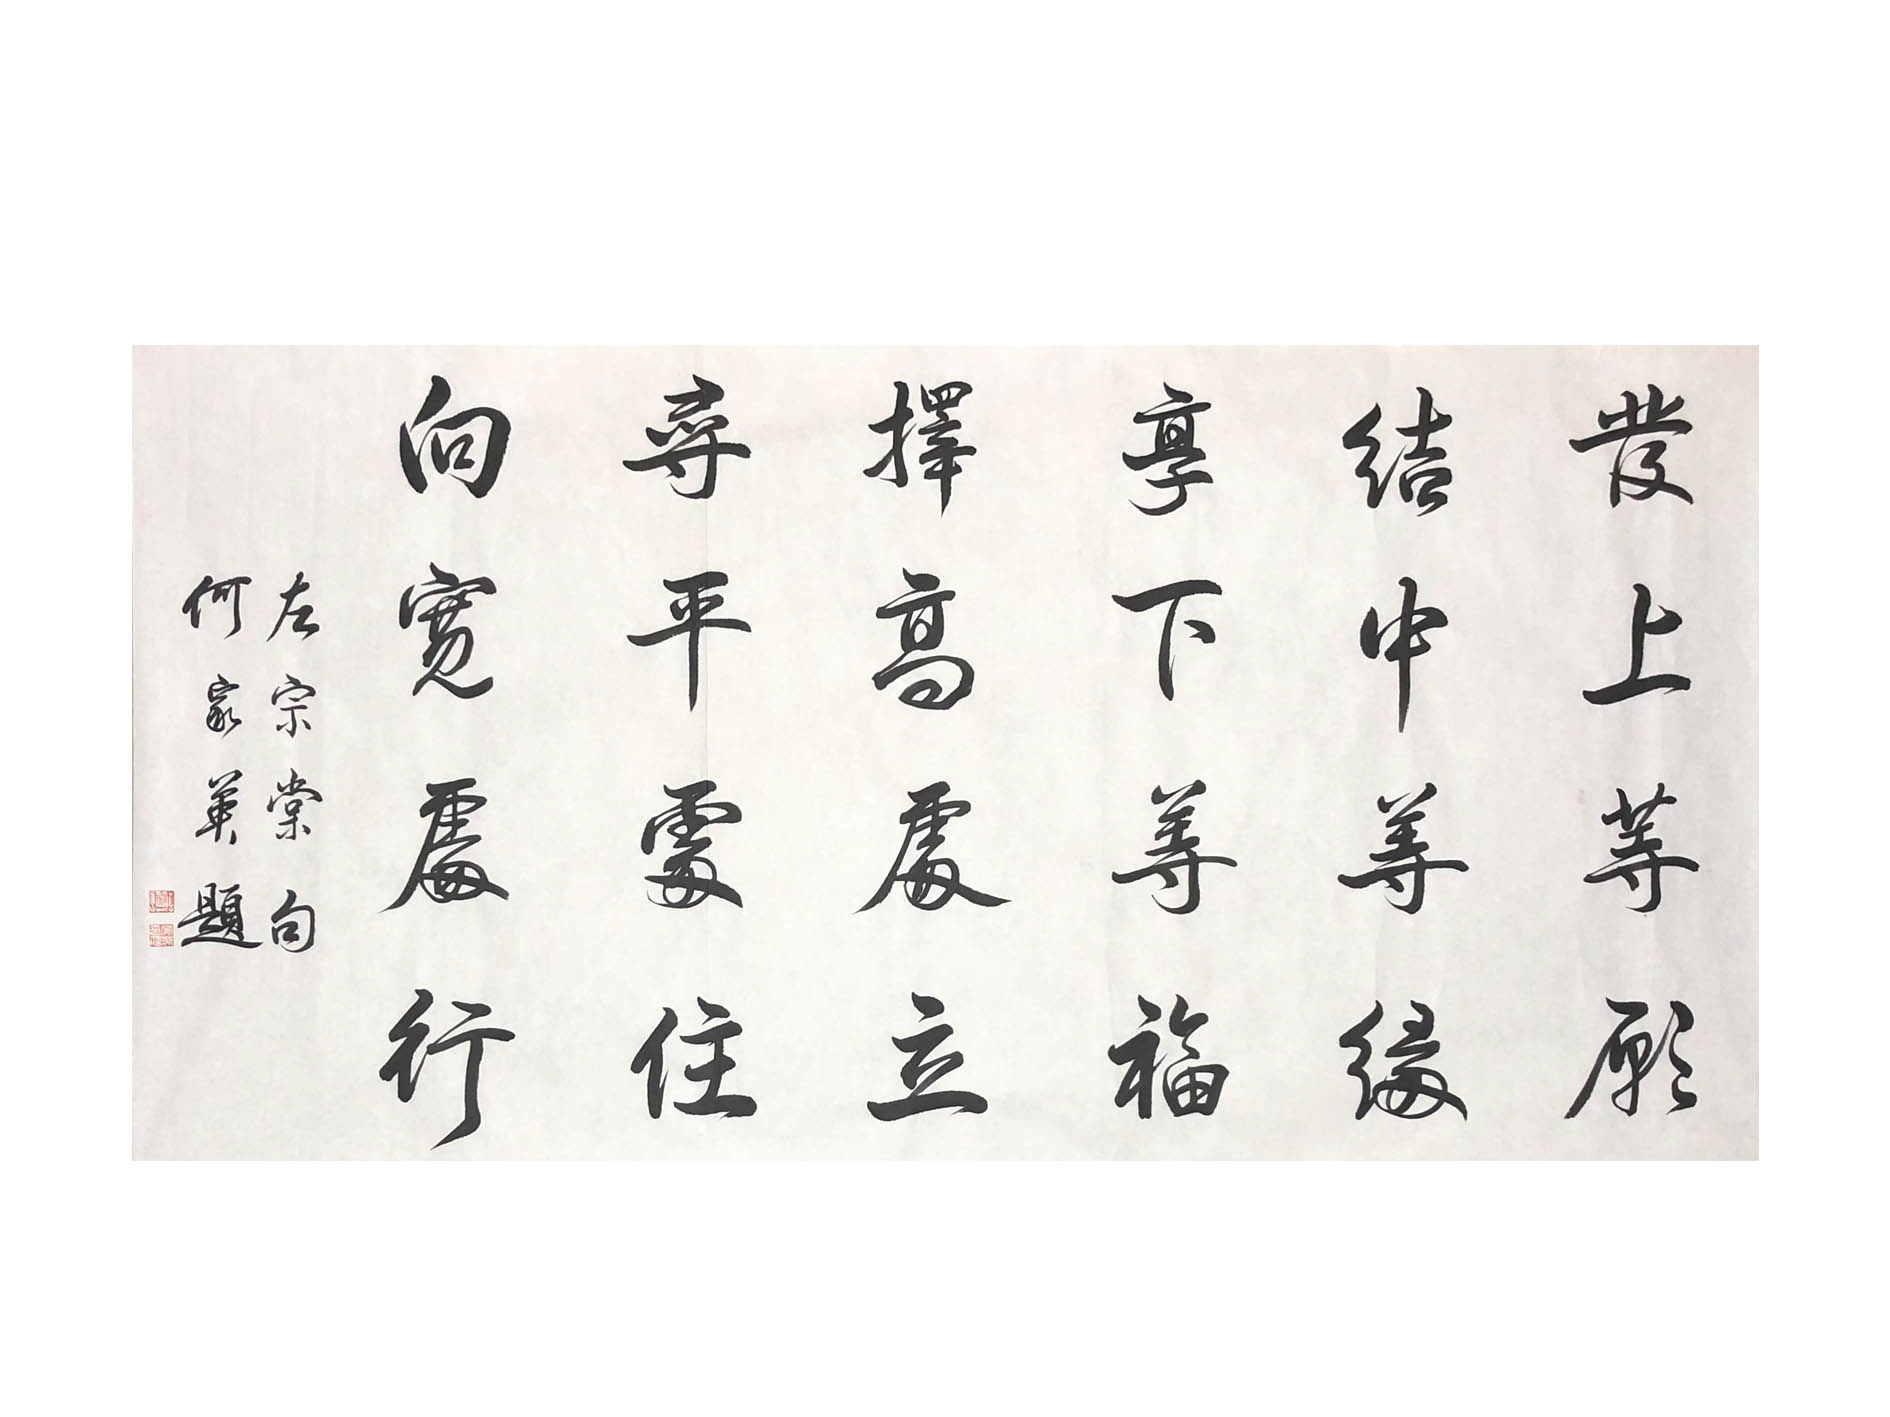 發上等願
結中等緣
享下等福
擇高處立
尋平處住
向寬處行
左宗棠句
何家英題